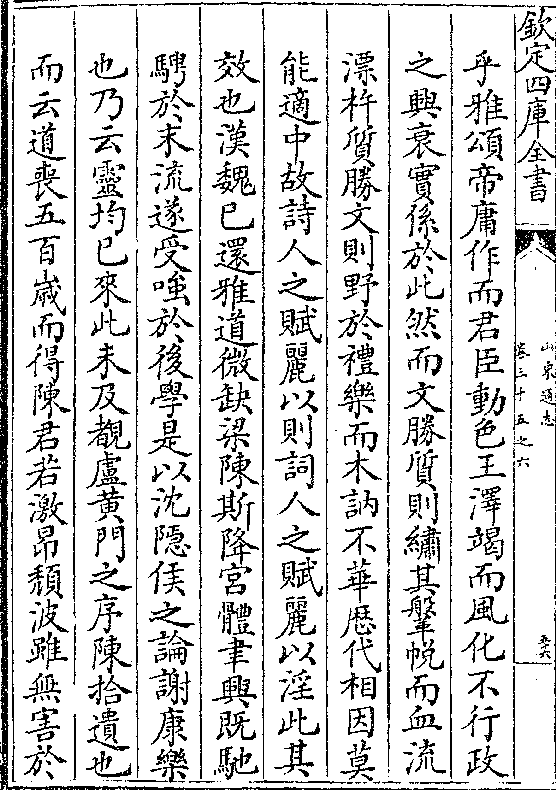 欽定四庫全書
山東通志
卷三十五之六
乎雅頌帝庸作而君臣動色王澤竭而風化不行政
之興衰實係於此然而文勝質則繡其鞶帨而血流
漂杵質勝文則野於禮樂而木訥不華歷代相因莫
能適中故詩人之賦麗以則詞人之賦麗以淫此其
效也漢魏已還雅道微缺梁陳斯降宮體聿興既馳
騁於末流遂受嗤於後學是以沈隱侯之論謝康樂
也乃云靈均已來此未及覩盧黃門之序陳拾遺也
而云道喪五百嵗而得陳君若激昂頽波雖無害於